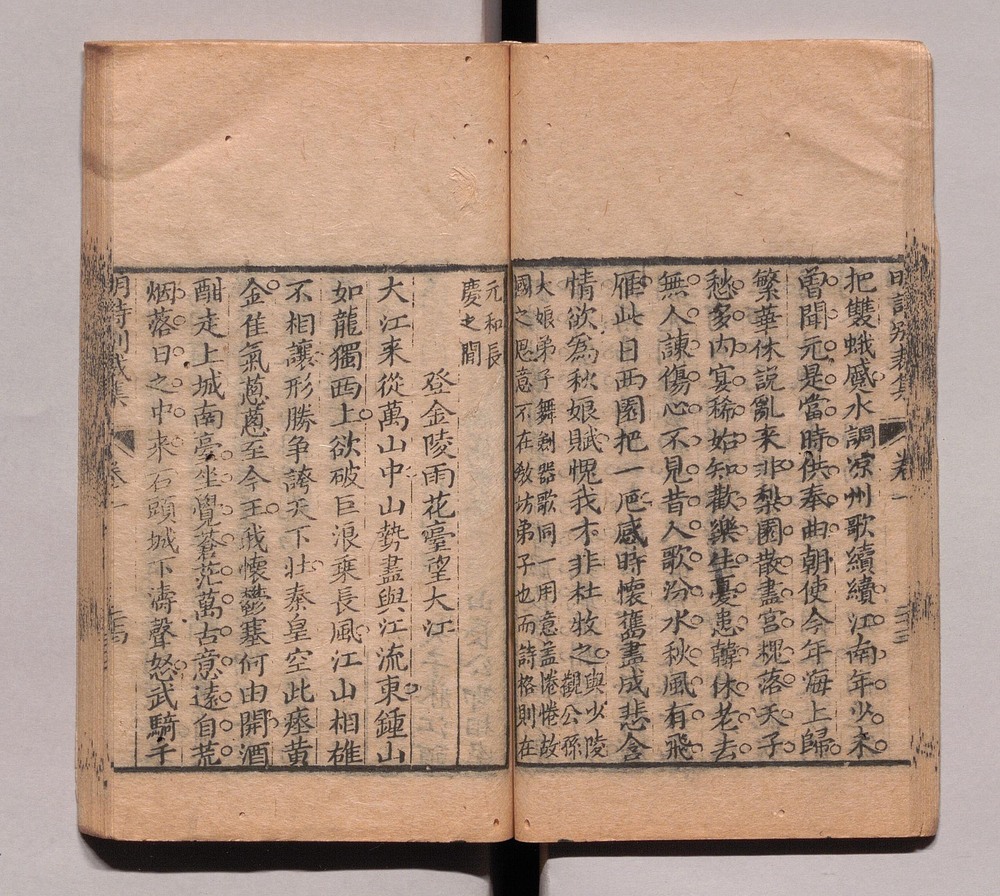 明詩別裁集 卷一
把雙蛾蹙水調凉州歌續續江南年少未
曾聞元是當時供奉曲朝使今年海上歸
繁華休說亂來非梨園散盡宮槐落天子
愁多內宴稀始知歡樂生憂患韓休老去
無人諫傷心不見昔人歌汾水秋風有飛
雁此日西園把一巵感時懷舊盡成悲含
情欲爲秋娘賦愧我才非杜牧之與少陵觀公孫
大娘弟子舞劍器歌同一用意蓋惓惓故
國之思意不在敎坊弟子也而詩格則在
元和長
慶之間
登金陵雨花臺望大江
大江来從萬山中山勢盡與江流東鍾山
如龍獨西上欲破巨浪乘長風江山相雄
不相讓形勝爭誇天下壯秦皇空此瘞黃
金佳氣蔥蔥至今王我懷鬱塞何由開酒
酣走上城南臺坐覺蒼茫萬古意遠自荒
烟落日之中来石頭城下濤聲怒武騎千
明詩別裁集 卷一